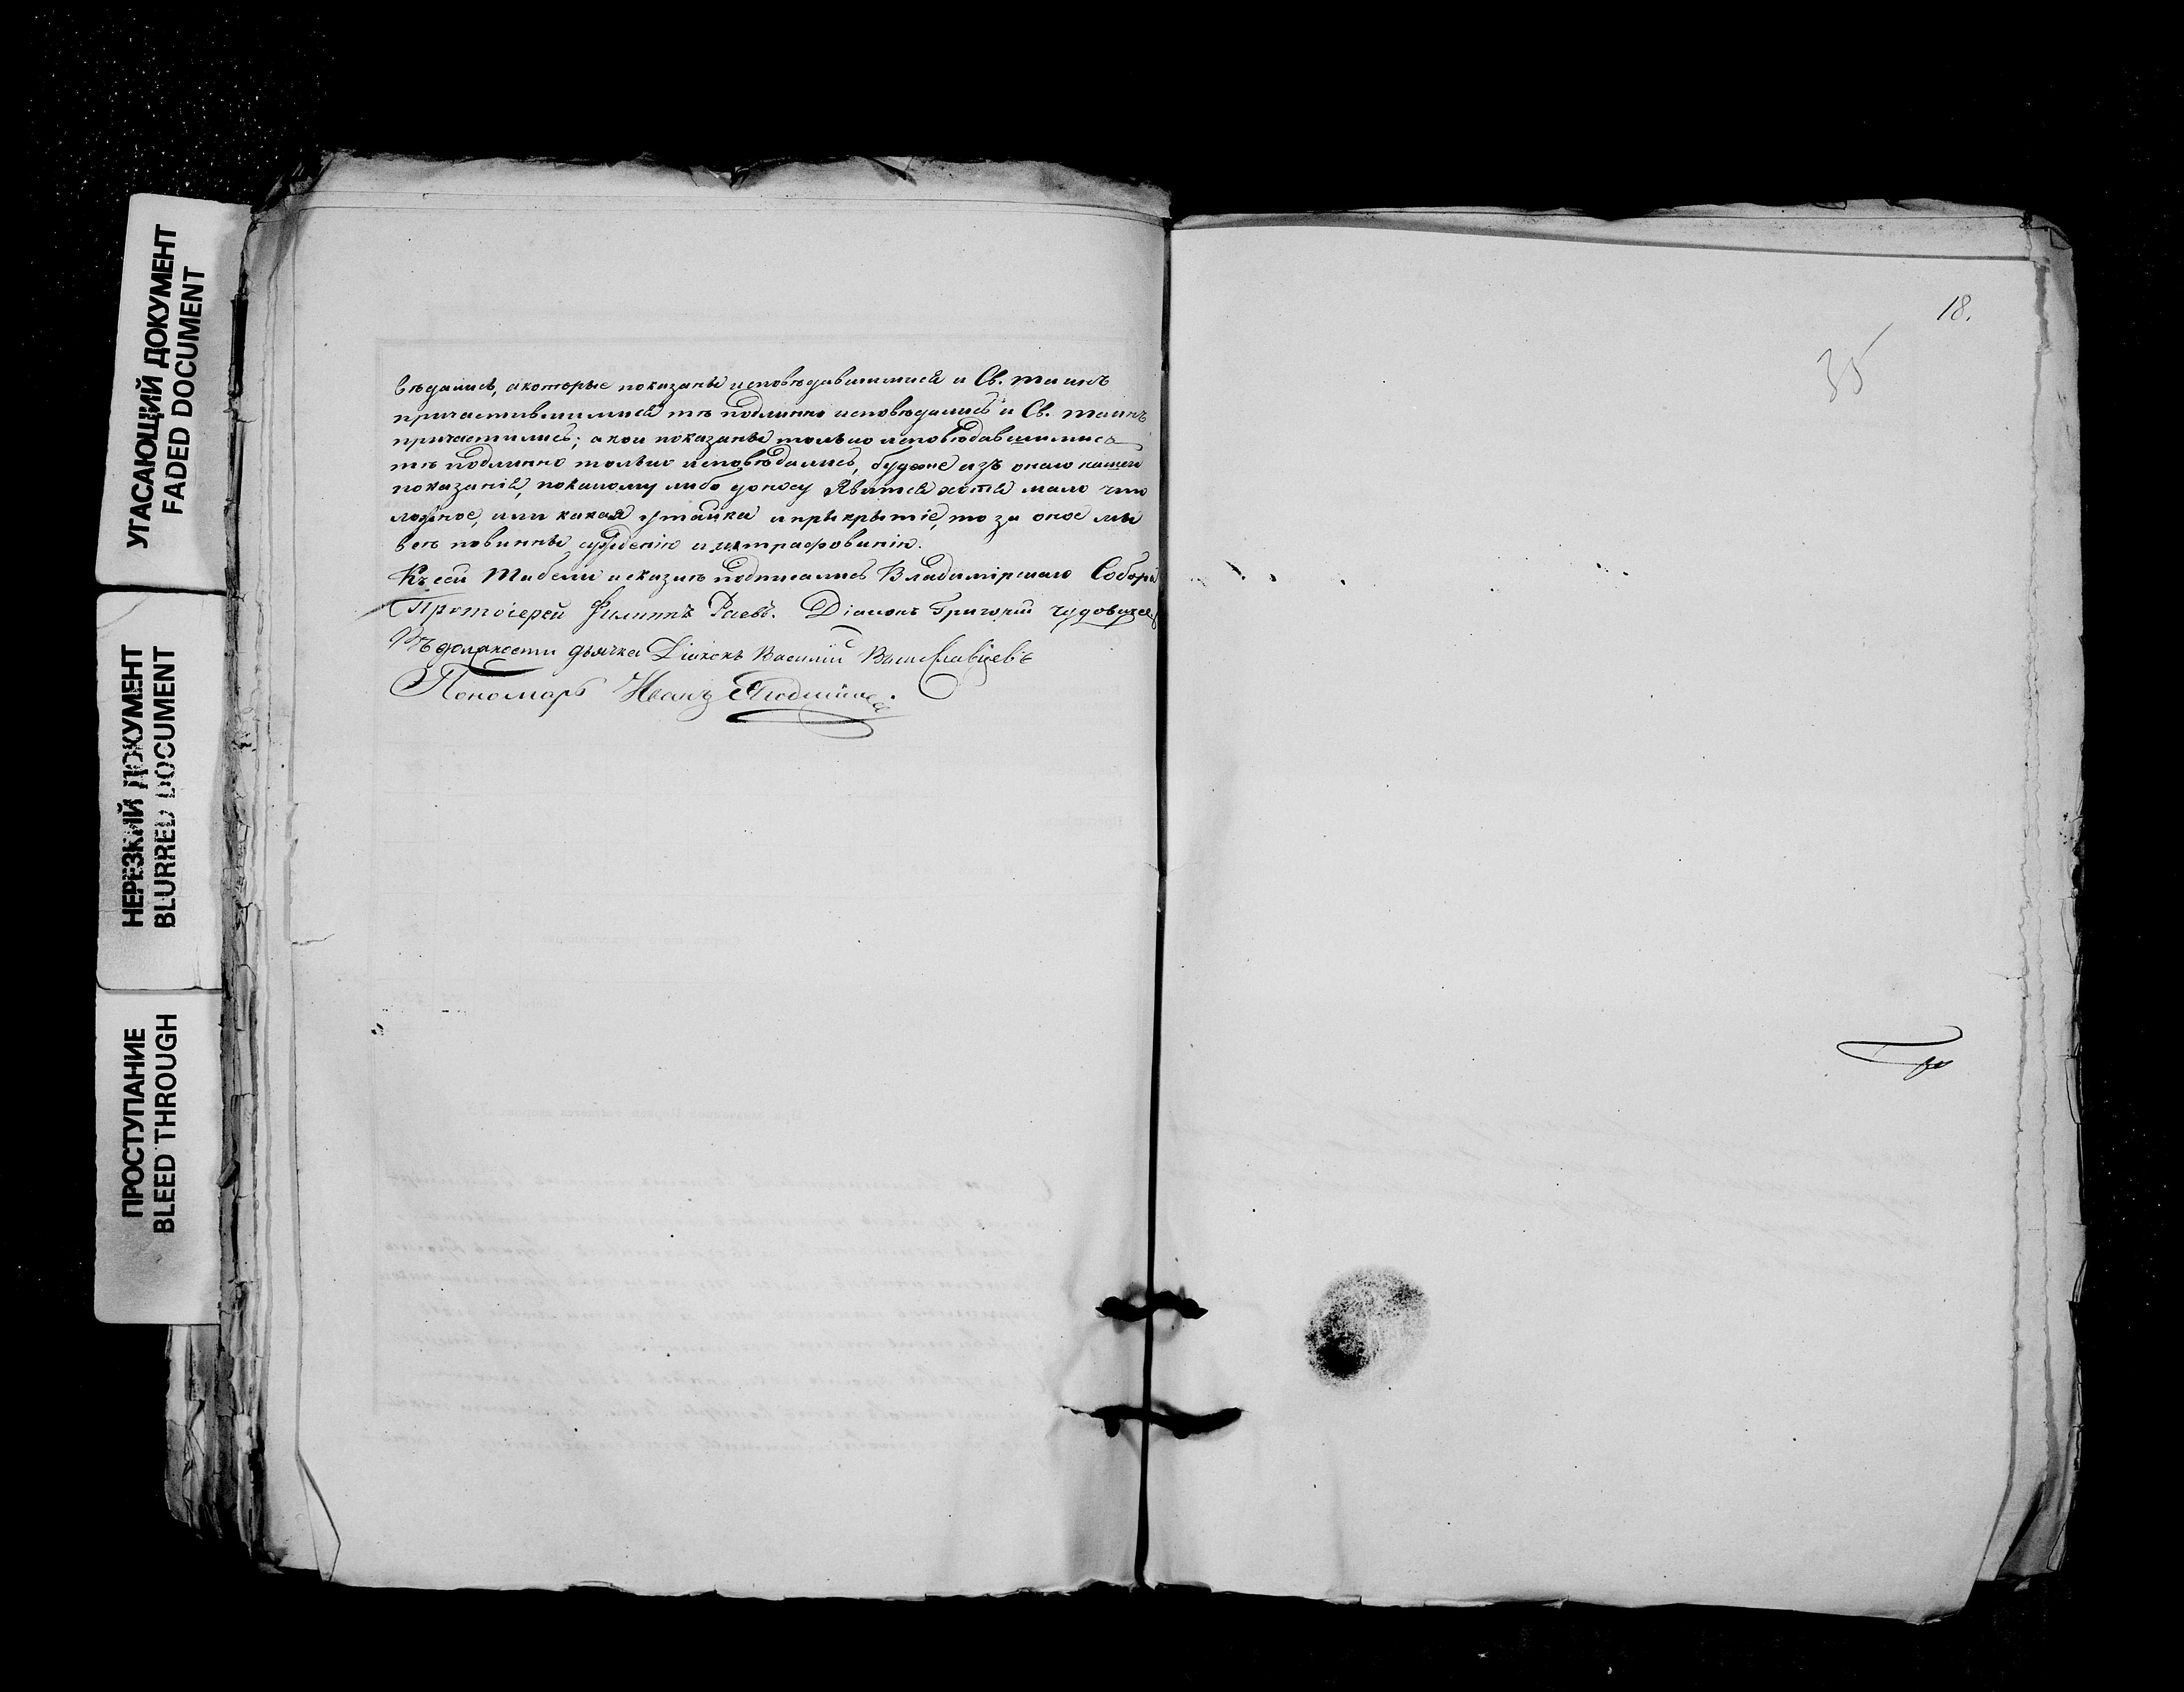 УГАСАЮЩИЙ ДОКУМЕНТ
FADED DOCUMENT
НЕРЕЗКИЙ ДОКУМЕНТ
BLURRED DOCUMENT
ПРОСТУПАНИЕ
BLEED THROUGH
вѣдались, а которые показаны исповѣдавшимися и Св. таинъ
причастившимися тѣ подлинно исповѣдались и Св. таинъ
причастились; а кои показаны только исповѣдавшимись
тѣ подлинно только исповѣдались, будеже изъ онаго нашего
показанія, по какому либо доносу явится хотя мало что
ложное, или какая утайка и прикрытіе, то за оное мы
всѣ повинны сужденію и штрафованію.
Къ сей Табели и сказкѣ подписались Владимірскаго Собора
Протоіерей Филиппъ Раевъ. Діаконъ Григорій
Въ должности дьячка Діаконъ Василій
Пономарь Иванъ
18.
35